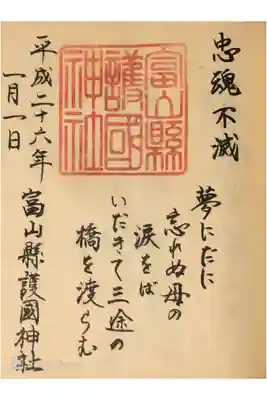 忠魂不滅
夢にだに
忘れぬ母の
涙をば
いだきて三途の
橋を渡らむ
富山縣
護國
神社
平成二十六年
一月一日
富山縣護國神社